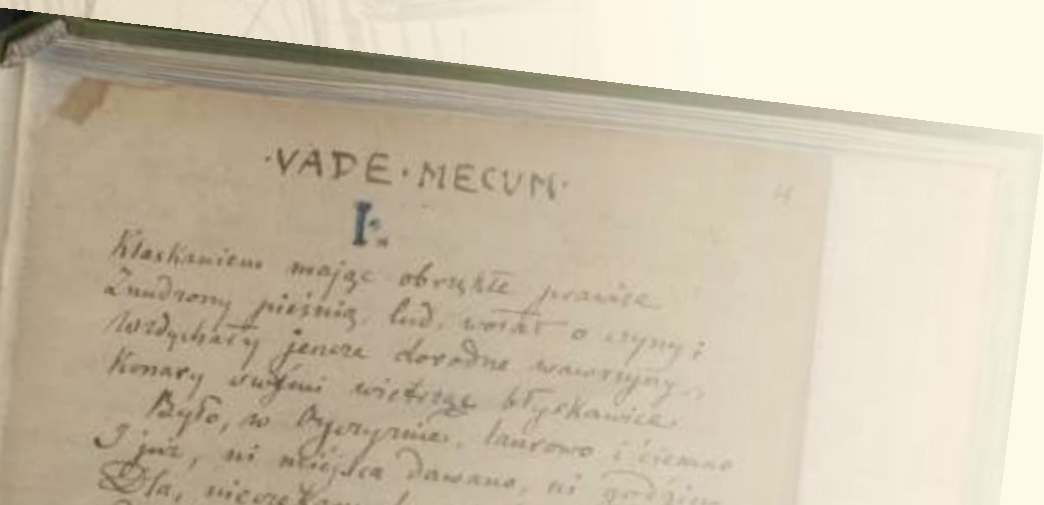 ·VADE·MECUM·
I.
Klaskaniem mając obrzękłe prawice
Znudzony pieśnią, lud, wołał o czyny;
Wzdychały jeszcze dorodne wawrzyny..,
Konary swymi wietrząc błyskawice.
Było, w Ojczyznie, laurowo i ciemno
I już, ni miejsca dawano, ni godziny
Dla, nieczekanych